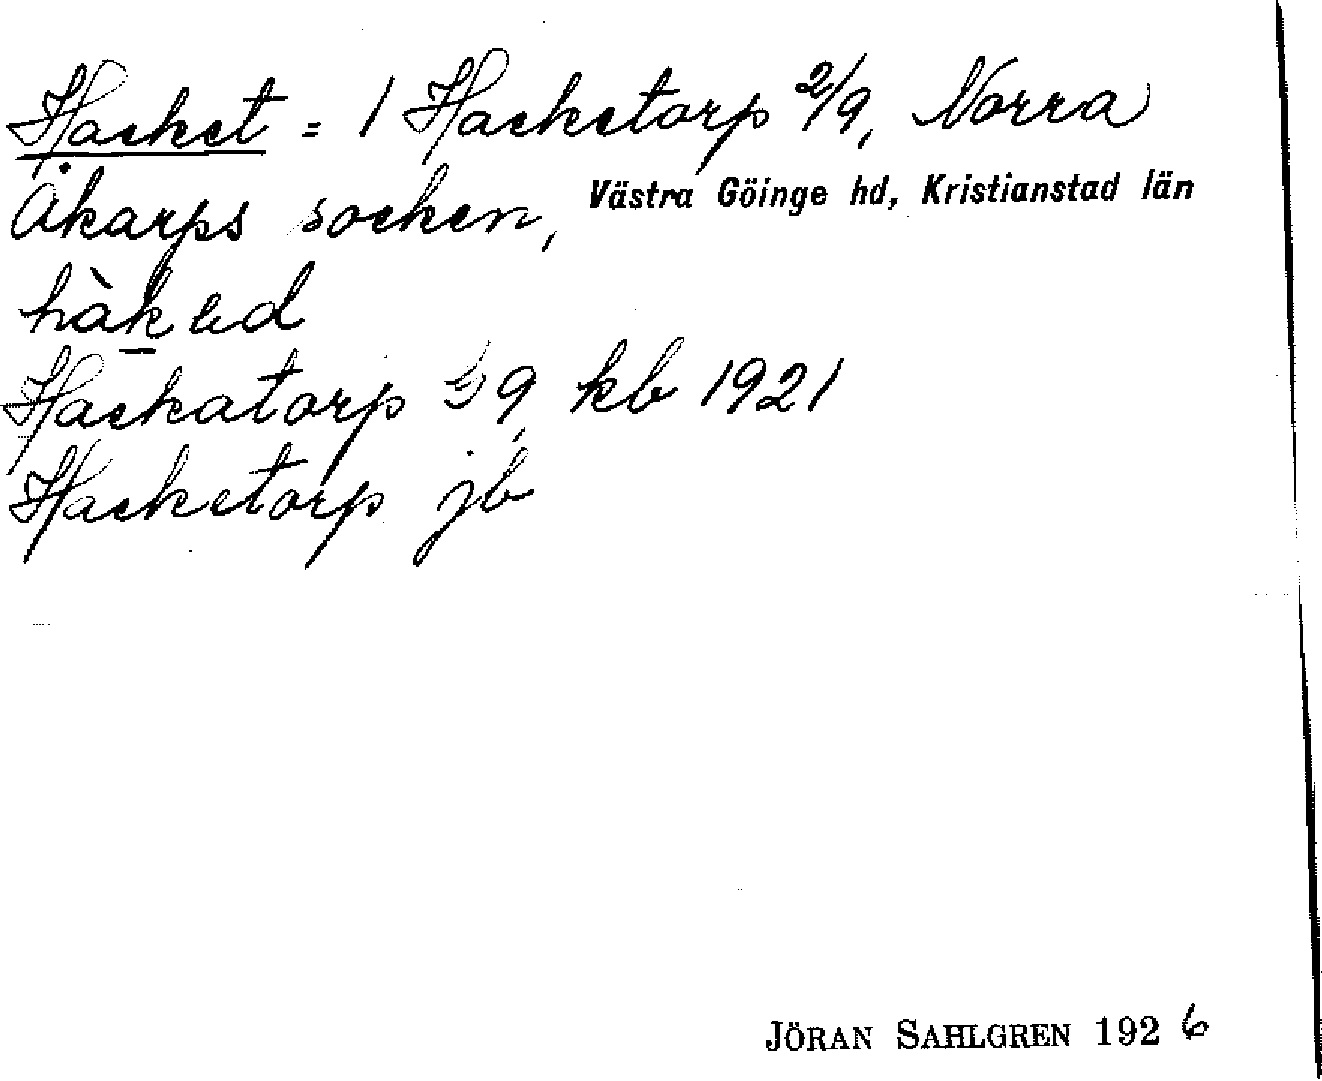 Hacket = 1 Hacketorp 2/9, Norra
Åkarps socken, Västra Göinge hd, Kristianstad län
Hackatorp 9, kb 1921
Hacketorp jb
JÖRAN SAHLGREN 1926